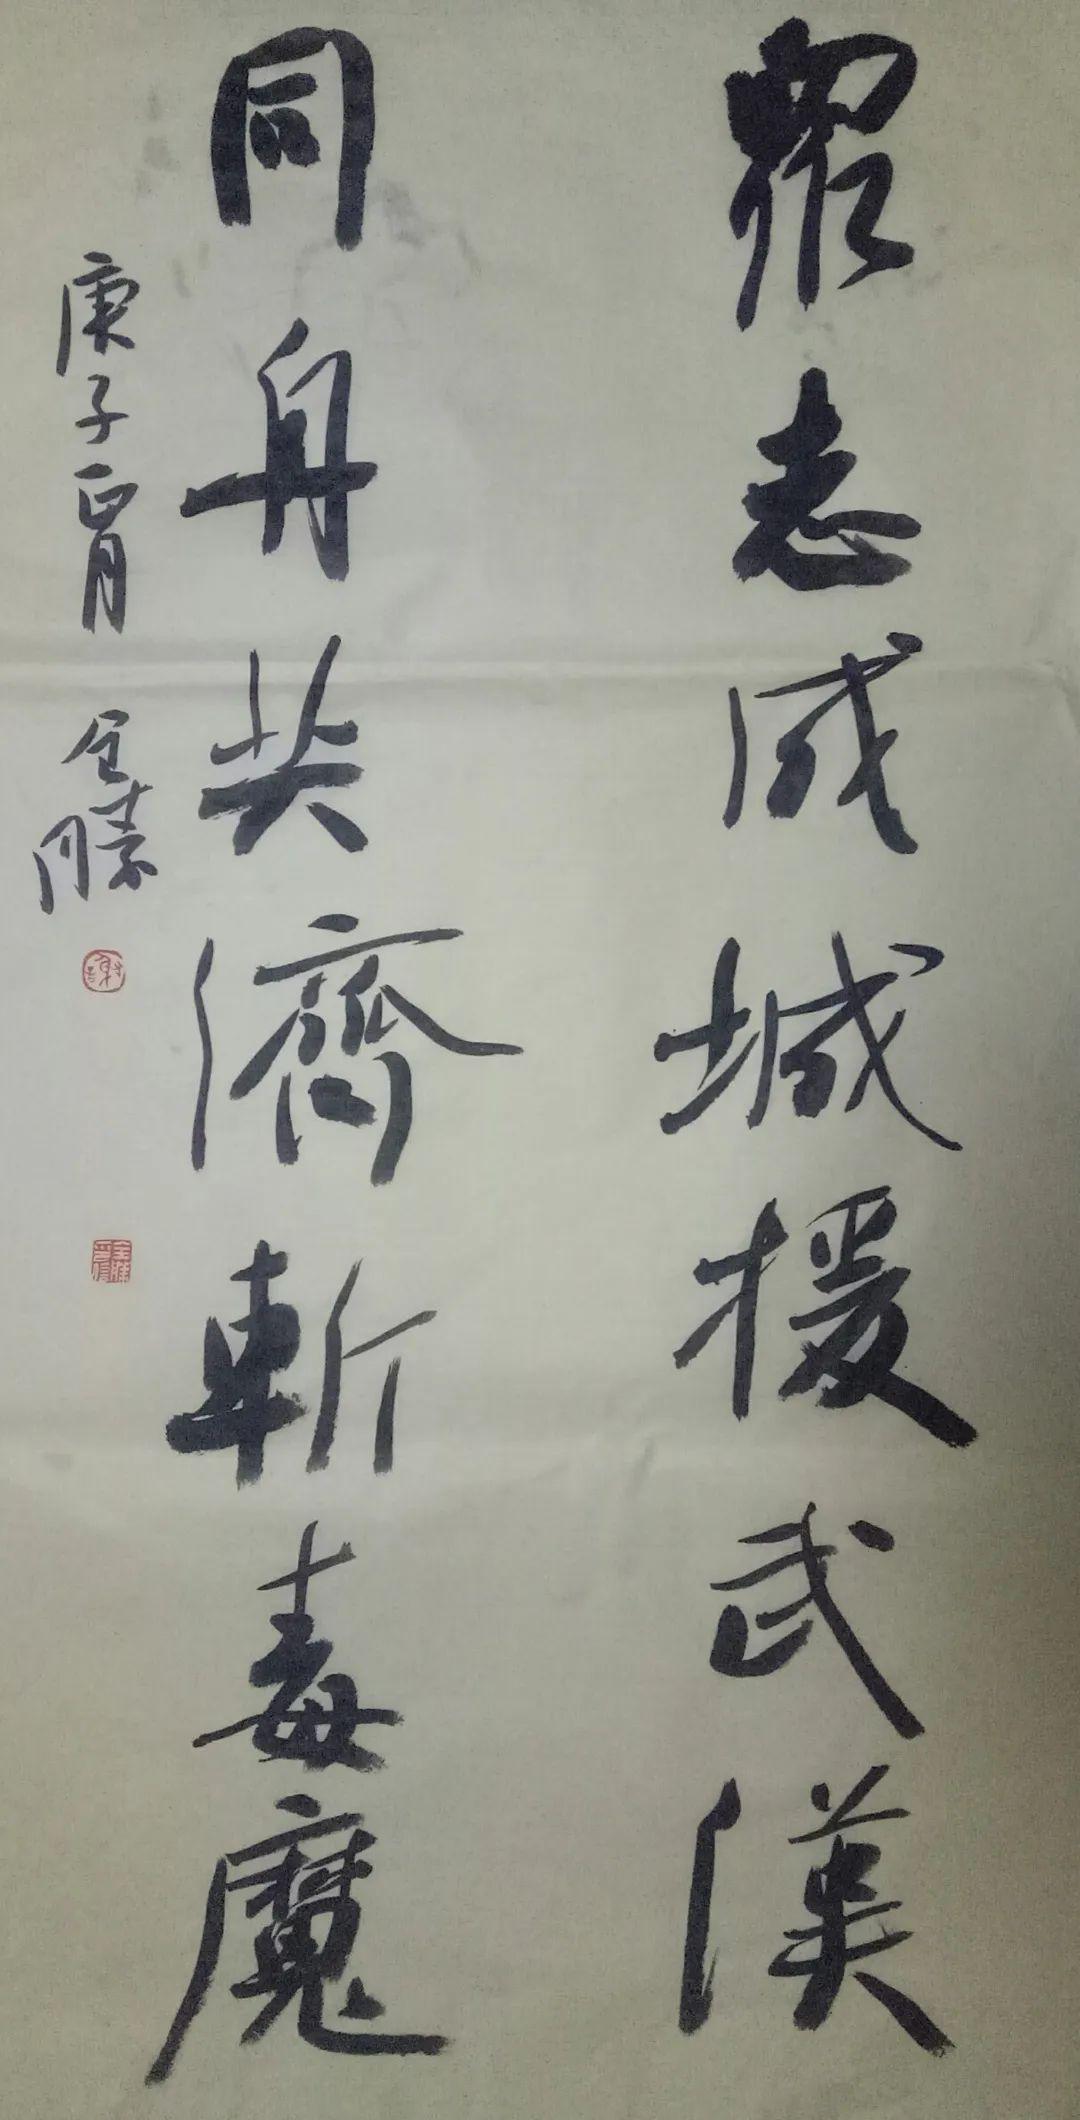 眾志成城援武漢
同舟共濟斬毒魔
庚子正月 全勝